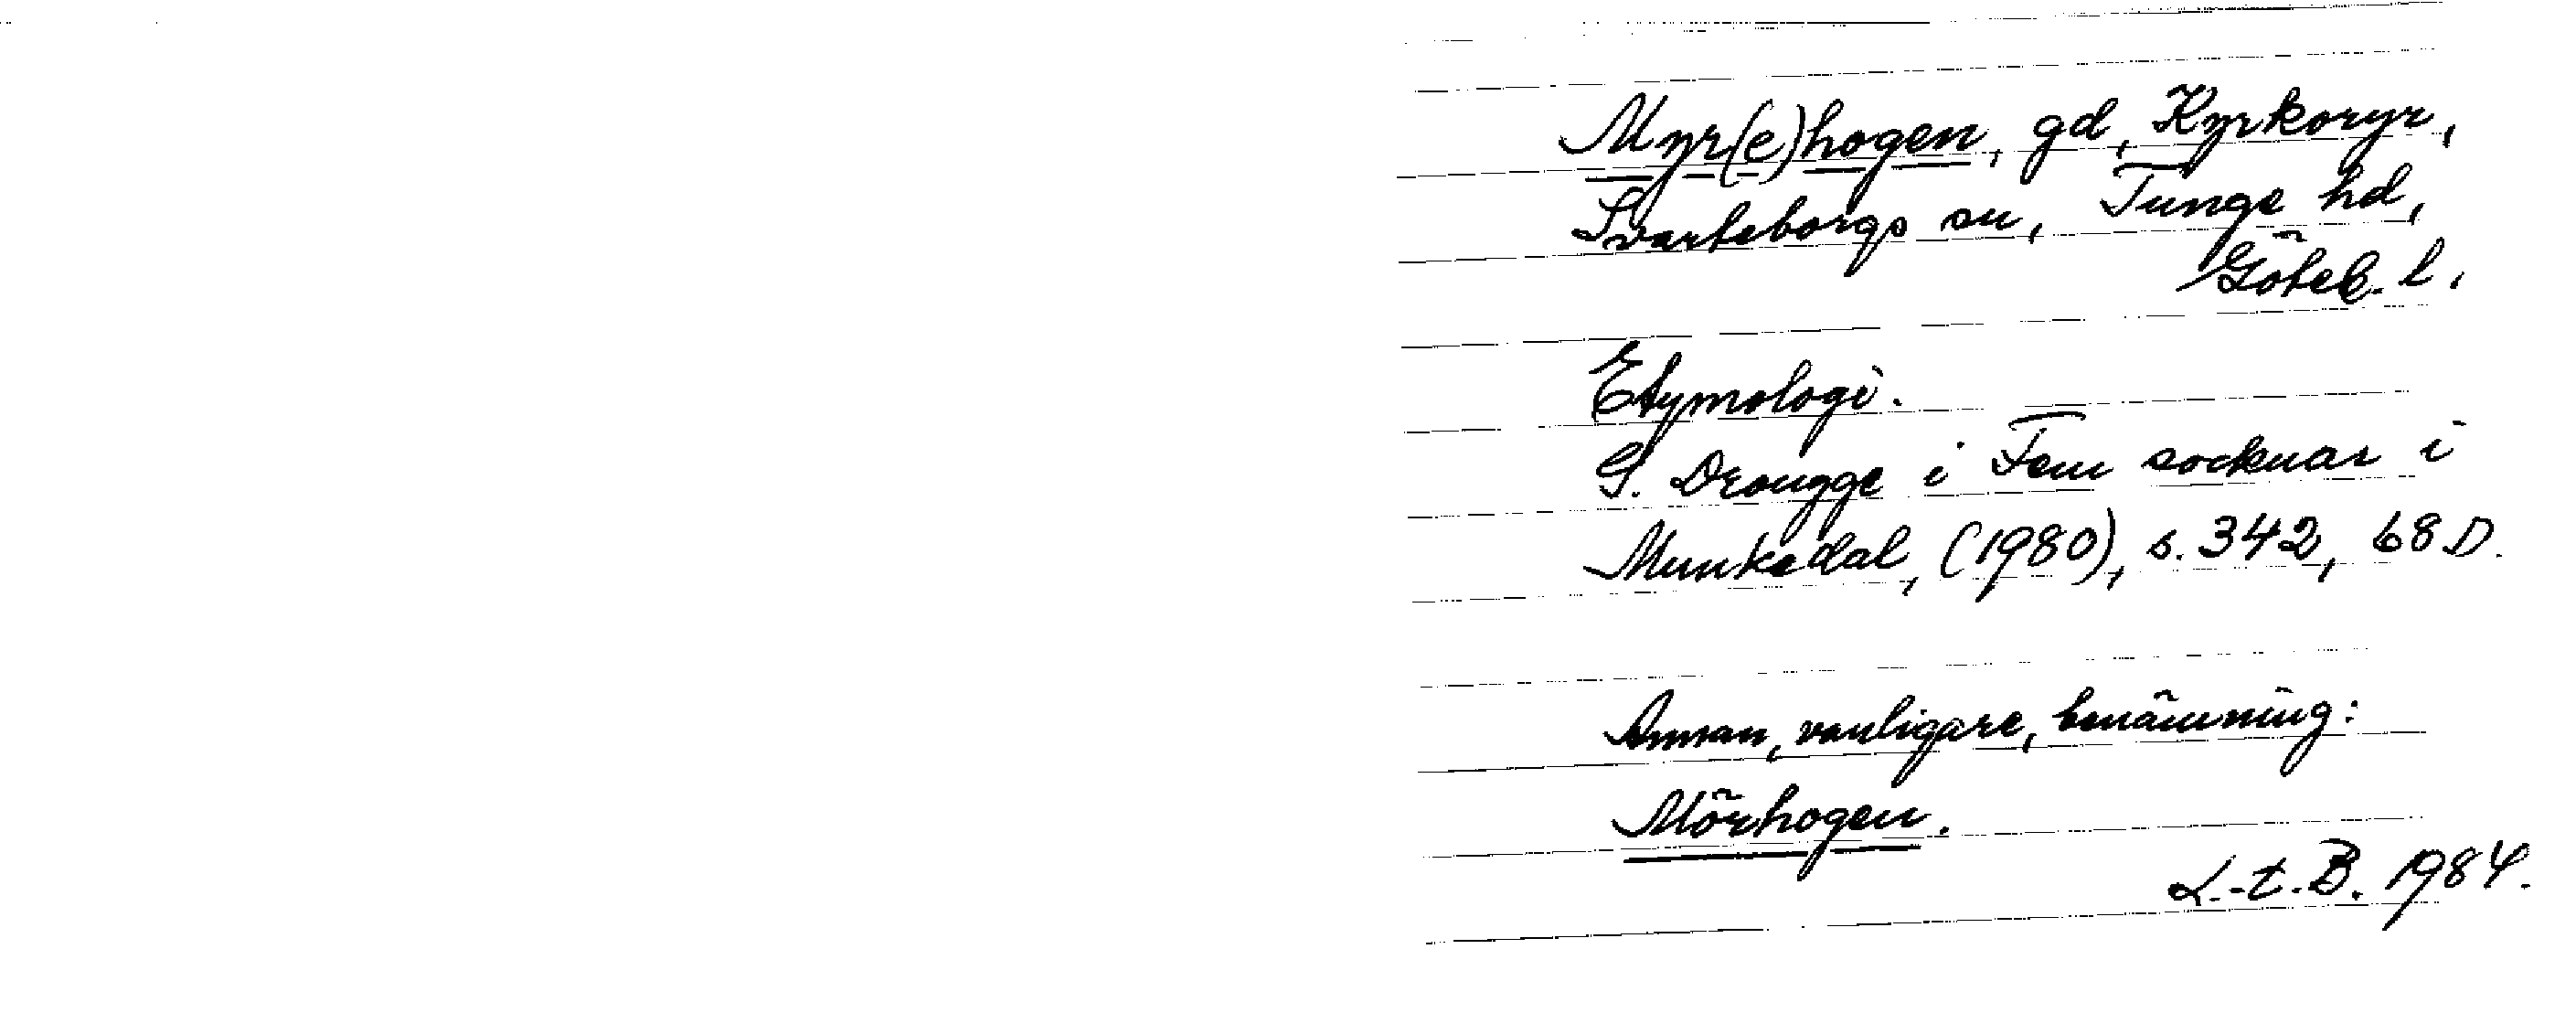 Myr(e)hogen, gd, Kyrkoryr,
Svarteborgs sn, Tunge hd,
Göteb. l.
Etymologi.
G. Drougge i Fem socknar i
Munkedal, (1980), s. 342, 68 D.
Annan, vanligare, benämning:
Mörhogen.
L.-t. B. 1984.